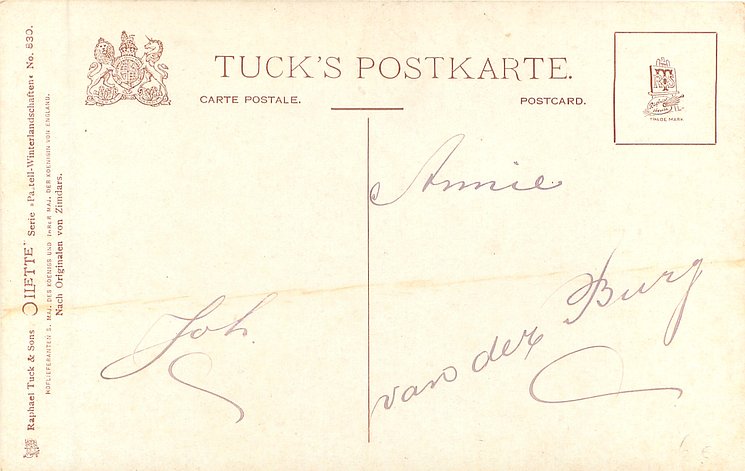 TUCK'S POSTKARTE.
CARTE POSTALE.
POSTCARD.
TRADE MARK
Annie
van der Burg
Joh.
Raphael Tuck & Sons „OILETTE” Serie »Pastell-Winterlandschaften« No. 830.
HOFLIEFERANTEN S. MAJ. DES KOENIGS UND IHRER MAJ. DER KOENIGIN VON ENGLAND.
Nach Originalen von Zimdars.